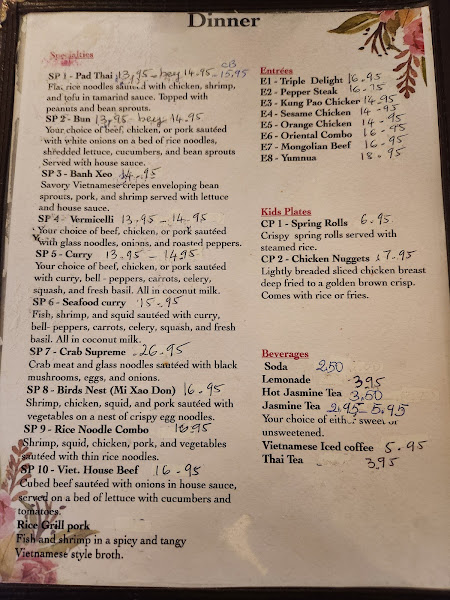 Dinner
Specialties
SP 1 - Pad Thai 13.95 - bey 14.95 - CB 15.95
Flat rice noodles sautéed with chicken, shrimp,
and tofu in tamarind sauce. Topped with
peanuts and bean sprouts.
SP 2 - Bun 13.95 - bey 14.95
Your choice of beef, chicken, or pork sautéed
with white onions on a bed of rice noodles,
shredded lettuce, cucumbers, and bean sprouts
Served with house sauce.
SP 3 - Banh Xeo 14.95
Savory Vietnamese crepes enveloping bean
sprouts, pork, and shrimp served with lettuce
and house sauce.
SP 4 - Vermicelli 13.95 - 14.95
Your choice of beef, chicken, or pork sautéed
with glass noodles, onions, and roasted peppers.
SP 5 - Curry 13.95 - 14.95
Your choice of beef, chicken, or pork sautéed
with curry, bell - peppers, carrots, celery,
squash, and fresh basil. All in coconut milk.
SP 6 - Seafood curry 15.95
Fish, shrimp, and squid sautéed with curry,
bell- peppers, carrots, celery, squash, and fresh
basil. All in coconut milk.
SP 7 - Crab Supreme - 26.95
Crab meat and glass noodles sautéed with black
mushrooms, eggs, and onions.
SP 8 - Birds Nest (Mi Xao Don) 16.95
Shrimp, chicken, squid, and pork sautéed with
vegetables on a nest of crispy egg noodles.
SP 9 - Rice Noodle Combo 16.95
Shrimp, squid, chicken, pork, and vegetables
sautéed with thin rice noodles.
SP 10 - Viet. House Beef 16.95
Cubed beef sautéed with onions in house sauce,
served on a bed of lettuce with cucumbers and
tomatoes.
Rice Grill pork
Fish and shrimp in a spicy and tangy
Vietnamese style broth.
Entrées
E1 - Triple Delight 16.95
E2 - Pepper Steak 16.95
E3 - Kung Pao Chicken 14.95
E4 - Sesame Chicken 14.95
E5 - Orange Chicken 14.95
E6 - Oriental Combo 16.95
E7 - Mongolian Beef 16.95
E8 - Yumnua 18.95
Kids Plates
CP 1 - Spring Rolls 6.95
Crispy spring rolls served with
steamed rice.
CP 2 - Chicken Nuggets 7.95
Lightly breaded sliced chicken breast
deep fried to a golden brown crisp.
Comes with rice or fries.
Beverages
Soda 2.50
Lemonade 3.95
Hot Jasmine Tea 3.50
Jasmine Tea 2.95 - 5.95
Your choice of either sweet or
unsweetened.
Vietnamese Iced coffee 5.95
Thai Tea 3.95